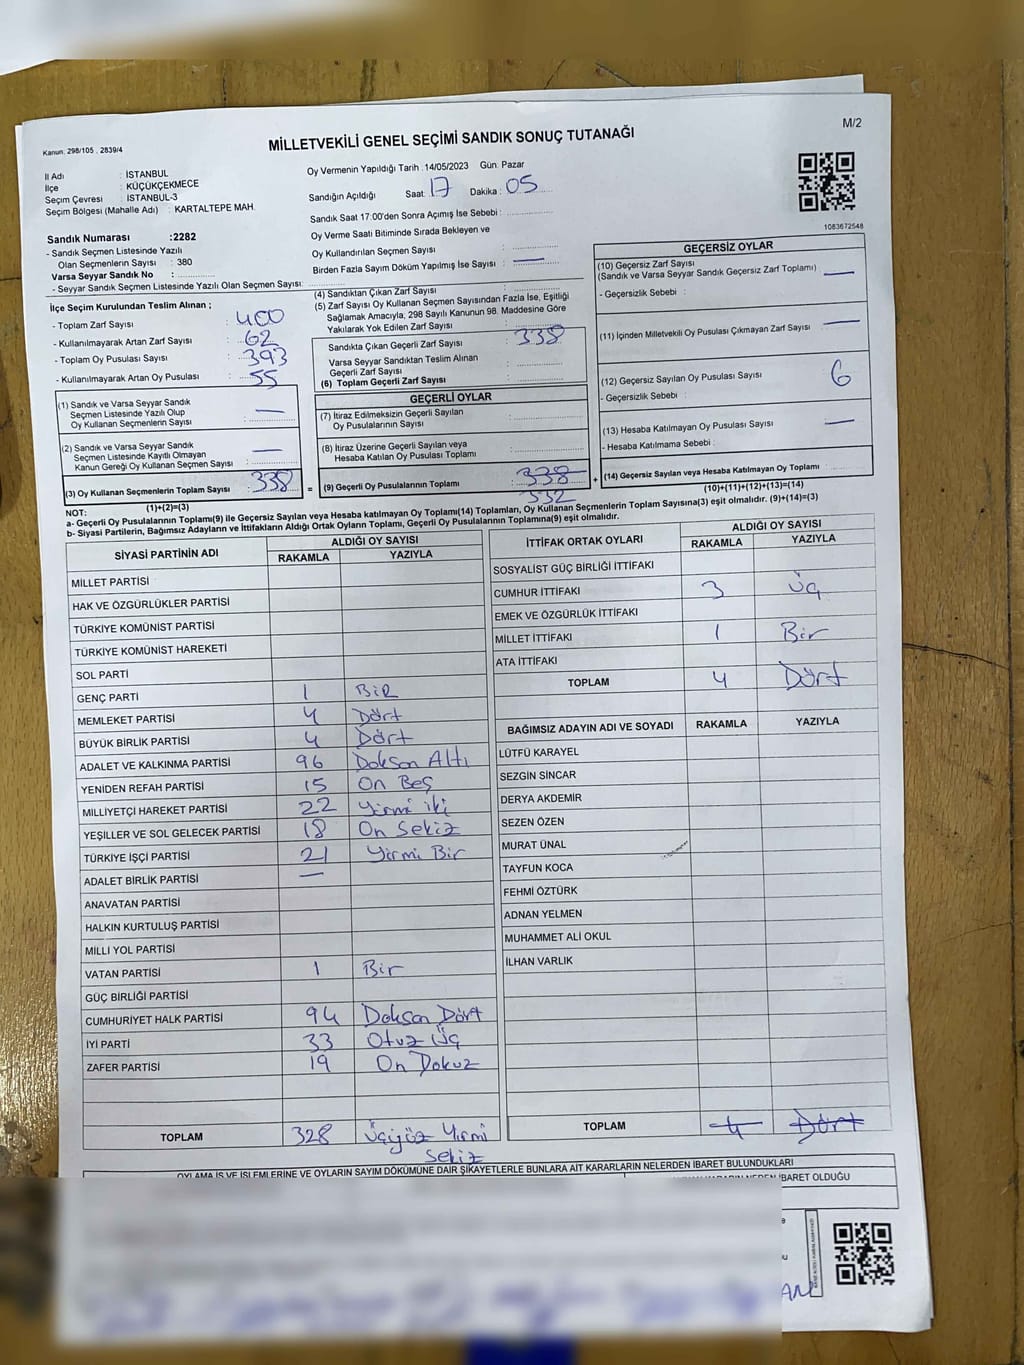 M/2
Kanun: 298/105 , 2839/4
MİLLETVEKİLİ GENEL SEÇİMİ SANDIK SONUÇ TUTANAĞI
İl Adı : İSTANBUL
İlçe : KÜÇÜKÇEKMECE
Seçim Çevresi : İSTANBUL-3
Seçim Bölgesi (Mahalle Adı) : KARTALTEPE MAH.
Sandık Numarası :2282
- Sandık Seçmen Listesinde Yazılı
Olan Seçmenlerin Sayısı : 380
Varsa Seyyar Sandık No :
- Seyyar Sandık Seçmen Listesinde Yazılı Olan Seçmen Sayısı:
Oy Vermenin Yapıldığı Tarih : 14/05/2023 Gün: Pazar
Sandığın Açıldığı Saat: 17 Dakika : 05
Sandık Saat 17:00'den Sonra Açımış İse Sebebi :
Oy Verme Saati Bitiminde Sırada Bekleyen ve
Oy Kullandırılan Seçmen Sayısı :
Birden Fazla Sayım Döküm Yapılmış İse Sayısı : —
1083672548
İlçe Seçim Kurulundan Teslim Alınan ;
- Toplam Zarf Sayısı : 400
- Kullanılmayarak Artan Zarf Sayısı : 62
- Toplam Oy Pusulası Sayısı : 393
- Kullanılmayarak Artan Oy Pusulası : 55
(1) Sandık ve Varsa Seyyar Sandık
Seçmen Listesinde Yazılı Olup
Oy Kullanan Seçmenlerin Sayısı : —
(2) Sandık ve Varsa Seyyar Sandık
Seçmen Listesinde Kayıtlı Olmayan
Kanun Gereği Oy Kullanan Seçmen Sayısı : —
(3) Oy Kullanan Seçmenlerin Toplam Sayısı : 338
(1)+(2)=(3)
(4) Sandıktan Çıkan Zarf Sayısı :
(5) Zarf Sayısı Oy Kullanan Seçmen Sayısından Fazla İse, Eşitliği
Sağlamak Amacıyla, 298 Sayılı Kanunun 98. Maddesine Göre
Yakılarak Yok Edilen Zarf Sayısı :
Sandıkta Çıkan Geçerli Zarf Sayısı : 338
Varsa Seyyar Sandıktan Teslim Alınan
Geçerli Zarf Sayısı :
(6) Toplam Geçerli Zarf Sayısı :
GEÇERLİ OYLAR
(7) İtiraz Edilmeksizin Geçerli Sayılan
Oy Pusulalarının Sayısı :
(8) İtiraz Üzerine Geçerli Sayılan veya
Hesaba Katılan Oy Pusulası Toplamı :
= (9) Geçerli Oy Pusulalarının Toplamı : 338
332
GEÇERSİZ OYLAR
(10) Geçersiz Zarf Sayısı
(Sandık ve Varsa Seyyar Sandık Geçersiz Zarf Toplamı) : —
- Geçersizlik Sebebi :
(11) İçinden Milletvekili Oy Pusulası Çıkmayan Zarf Sayısı : —
(12) Geçersiz Sayılan Oy Pusulası Sayısı : 6
- Geçersizlik Sebebi :
(13) Hesaba Katılmayan Oy Pusulası Sayısı : —
- Hesaba Katılmama Sebebi :
+ (14) Geçersiz Sayılan veya Hesaba Katılmayan Oy Toplamı :
(10)+(11)+(12)+(13)=(14)
NOT:
a- Geçerli Oy Pusulalarının Toplamı(9) ile Geçersiz Sayılan veya Hesaba katılmayan Oy Toplamı(14) Toplamları, Oy Kullanan Seçmenlerin Toplam Sayısına(3) eşit olmalıdır. (9)+(14)=(3)
b- Siyasi Partilerin, Bağımsız Adayların ve İttifakların Aldığı Ortak Oyların Toplamı, Geçerli Oy Pusulalarının Toplamına(9) eşit olmalıdır.
SİYASİ PARTİNİN ADI ALDIĞI OY SAYISI
RAKAMLA YAZIYLA
MİLLET PARTİSİ
HAK VE ÖZGÜRLÜKLER PARTİSİ
TÜRKİYE KOMÜNİST PARTİSİ
TÜRKİYE KOMÜNİST HAREKETİ
SOL PARTİ
GENÇ PARTİ 1 BİR
MEMLEKET PARTİSİ 4 Dört
BÜYÜK BİRLİK PARTİSİ 4 Dört
ADALET VE KALKINMA PARTİSİ 96 Doksan Altı
YENİDEN REFAH PARTİSİ 15 On Beş
MİLLİYETÇİ HAREKET PARTİSİ 22 Yirmi iki
YEŞİLLER VE SOL GELECEK PARTİSİ 18 On Sekiz
TÜRKİYE İŞÇİ PARTİSİ 21 Yirmi Bir
ADALET BİRLİK PARTİSİ —
ANAVATAN PARTİSİ
HALKIN KURTULUŞ PARTİSİ
MİLLİ YOL PARTİSİ
VATAN PARTİSİ 1 Bir
GÜÇ BİRLİĞİ PARTİSİ
CUMHURİYET HALK PARTİSİ 94 Doksan Dört
İYİ PARTİ 33 Otuz Üç
ZAFER PARTİSİ 19 On Dokuz
TOPLAM 328 Üçyüz Yirmi
Sekiz
İTTİFAK ORTAK OYLARI ALDIĞI OY SAYISI
RAKAMLA YAZIYLA
SOSYALİST GÜÇ BİRLİĞİ İTTİFAKI
CUMHUR İTTİFAKI 3 Üç
EMEK VE ÖZGÜRLÜK İTTİFAKI
MİLLET İTTİFAKI 1 Bir
ATA İTTİFAKI
TOPLAM 4 Dört
BAĞIMSIZ ADAYIN ADI VE SOYADI RAKAMLA YAZIYLA
LÜTFÜ KARAYEL
SEZGİN SİNCAR
DERYA AKDEMİR
SEZEN ÖZEN
MURAT ÜNAL
TAYFUN KOCA
FEHMİ ÖZTÜRK
ADNAN YELMEN
MUHAMMET ALİ OKUL
İLHAN VARLIK
TOPLAM 4 Dört
OYLAMA İŞ VE İŞLEMLERİNE VE OYLARIN SAYIM DÖKÜMÜNE DAİR ŞİKAYETLERLE BUNLARA AİT KARARLARIN NELERDEN İBARET BULUNDUKLARI
İBARET OLDUĞU